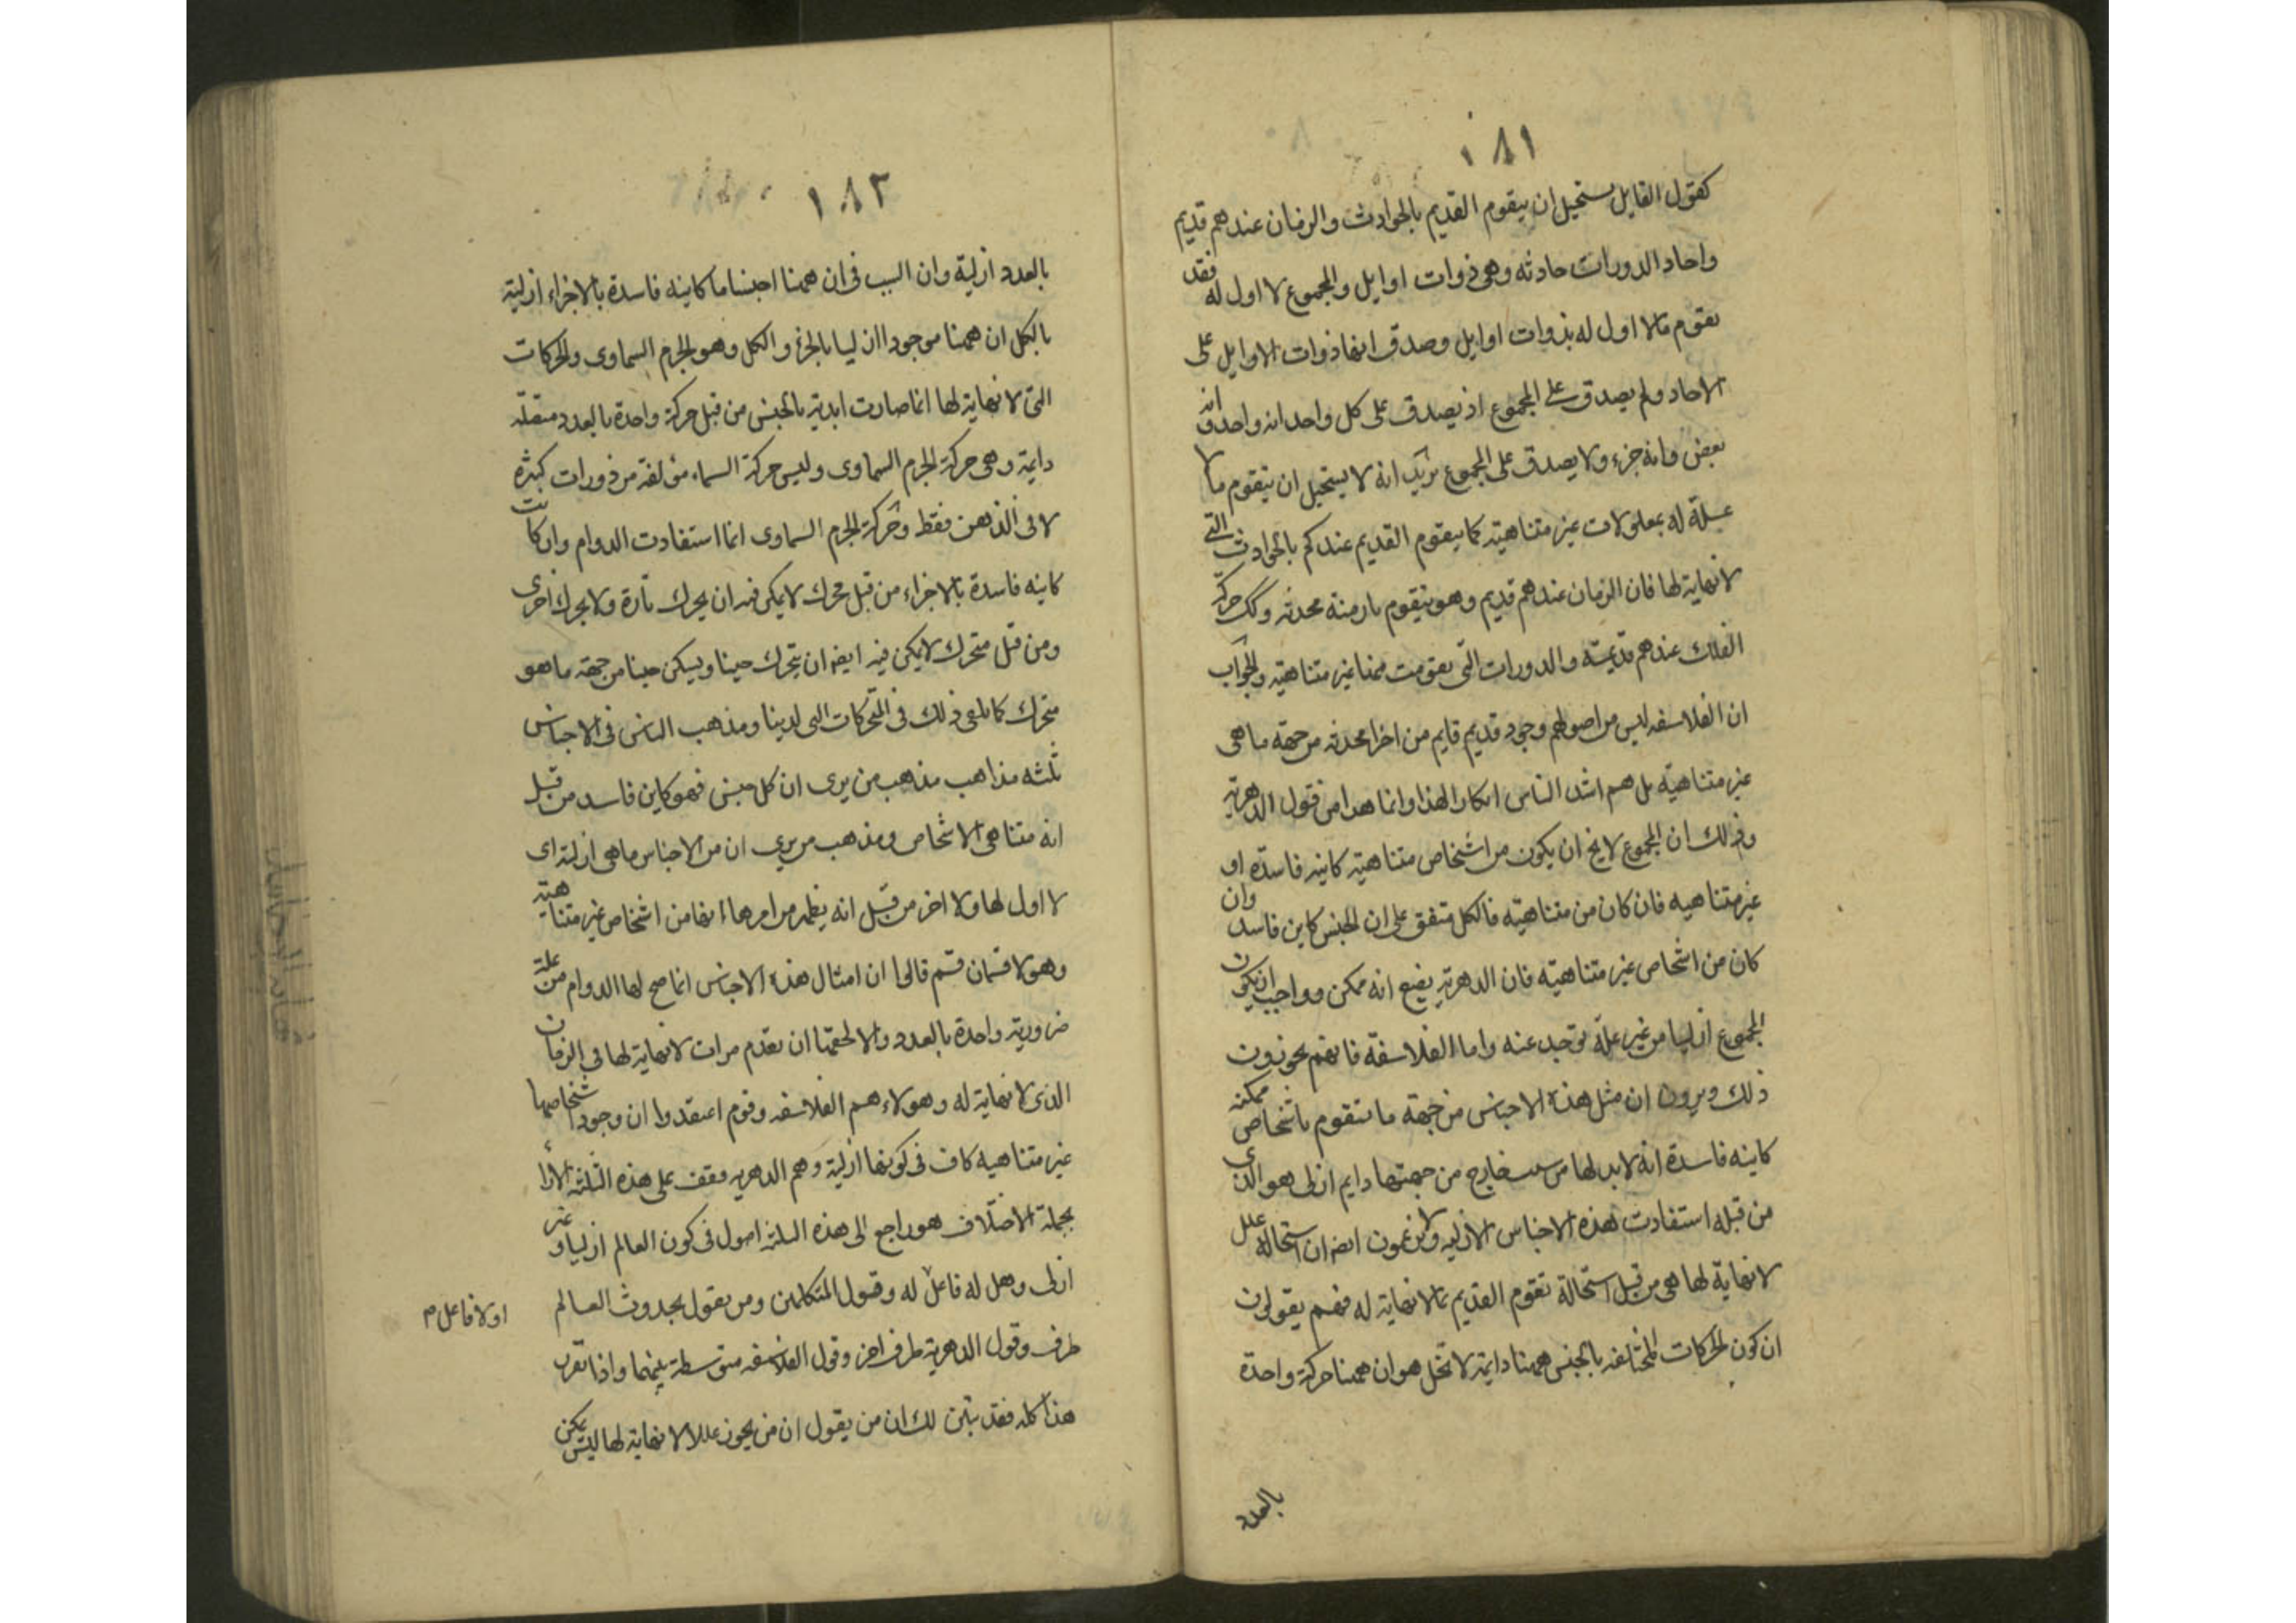 ١٨١
كقول القايل يستحيل ان يتقوم القديم بالحوادث والزمان عندهم قديم
واحاد الدورات حادثه وهى ذوات اوايل والمجموع لا اول له فقد
تقوم مالا اول له بذوات اوايل وصدق انها ذوات الاوايل على
الاحاد ولم يصدق على المجموع اذ يصدق على كل واحد انه واحد وانه
بعض وانه جزء ولا يصدق على المجموع يريد انه لا يستحيل ان يتقوم ما لا
علة له بمعلولات غير متناهية كما يتقوم القديم عندكم بالحوادث التى
لا نهاية لها فان الزمان عندهم قديم وهو يتقوم بازمنة محدثه وكك حركة
الفلك عندهم قديمة والدورات التى تقومت منها غير متناهية والجواب
ان الفلاسفه ليس من اصولهم وجود قديم قايم من اجزا محدثه من جهة ما هى
غير متناهية بل هم اشد الناس انكارا لهذا وانما هذا من قول الدهرية
وذلك ان المجموع لا يخ ان يكون من اشخاص متناهية كاينه فاسدة او
غير متناهيه فان كان من متناهية فالكل متفق على ان الجنس كاين فاسد وان
كان من اشخاص غير متناهية فان الدهرية يضع انه ممكن وواجب ان يكون
المجموع ازليا من غير علة توجد عنه واما الفلاسفة فانهم يجوزون
ذلك ويرون ان مثل هذه الاجناس من جهة ما تتقوم باشخاص ممكنه
كاينه فاسدة انه لا بد لها من سبب خارج من جهتها دايم ازلى هو الذى
من قبله استفادت هذه الاجناس الازليه ولا يزعمون ايضه ان استحالة علل
لا نهاية لها هى من قبل استحالة تقوم القديم بما لا نهاية له فهم يقولون
ان كون الحركات المختلفه بالجنس ههنا دايمة لا تخل هو ان ههنا حركة واحدة
بالعدد
١٨٢
بالعدد ازلية وان السبب فى ان ههنا اجناسا ما كاينه فاسدة بالاجزاء ازلية
بالكل ان ههنا موجودا ازليا بالجزء والكل وهو الجرم السماوى والحركات
التى لا نهاية لها انما صارت ابدية بالجنس من قبل حركة واحدة بالعدد متصلة
دايمة وهى حركة الجرم السماوى وليس حركة السماء مؤلفة من دورات كثيرة
لا فى الذهن فقط وحركة الجرم السماوى انما استفادت الدوام وان كانت
كاينه فاسدة بالاجزاء من قبل محرك لا يمكن فيه ان يحرك تارة ولا يحرك اخرى
ومن قبل متحرك لا يمكن فيه ايضه ان يتحرك حينا ويسكن حينا من جهة ما هو
متحرك كما يلفى ذلك فى المتحركات التى لدينا ومذهب الناس فى الاجناس
ثلثه مذاهب مذهب من يرى ان كل جنس فهو كاين فاسد من قبل
انه متناهى الاشخاص ومذهب من يرى ان من الاجناس ما هى ازلية اى
لا اول لها ولا اخر من قبل انه يظهر من امرها انها من اشخاص غير متناهية
وهولا قسمان قسم قالوا ان امثال هذه الاجناس انما صح لها الدوام من علة
ضرورية واحدة بالعدد والا لحقها ان تعدم مرات لا نهاية لها فى الزمان
الذى لا نهاية له وهولاء هم الفلاسفه وقوم اعتقدوا ان وجود اشخاصها
غير متناهيه كاف فى كونها ازلية وهم الدهريه فقف على هذه الثلثه الآرا
بجملة الاختلاف هو راجع الى هذه الثلثه اصول فى كون العالم ازليا وغير
ازلى وهل له فاعل له وقول المتكلمين ومن يقول بحدوث العالم
او لا فاعل م
طرف وقول الدهرية طرف اخر وقول الفلاسفه متوسطة بينهما واذا تقرر
هذا كله فقد تبين لك ان من يقول ان من يجوز عللا لا نهاية لها ليس يمكن